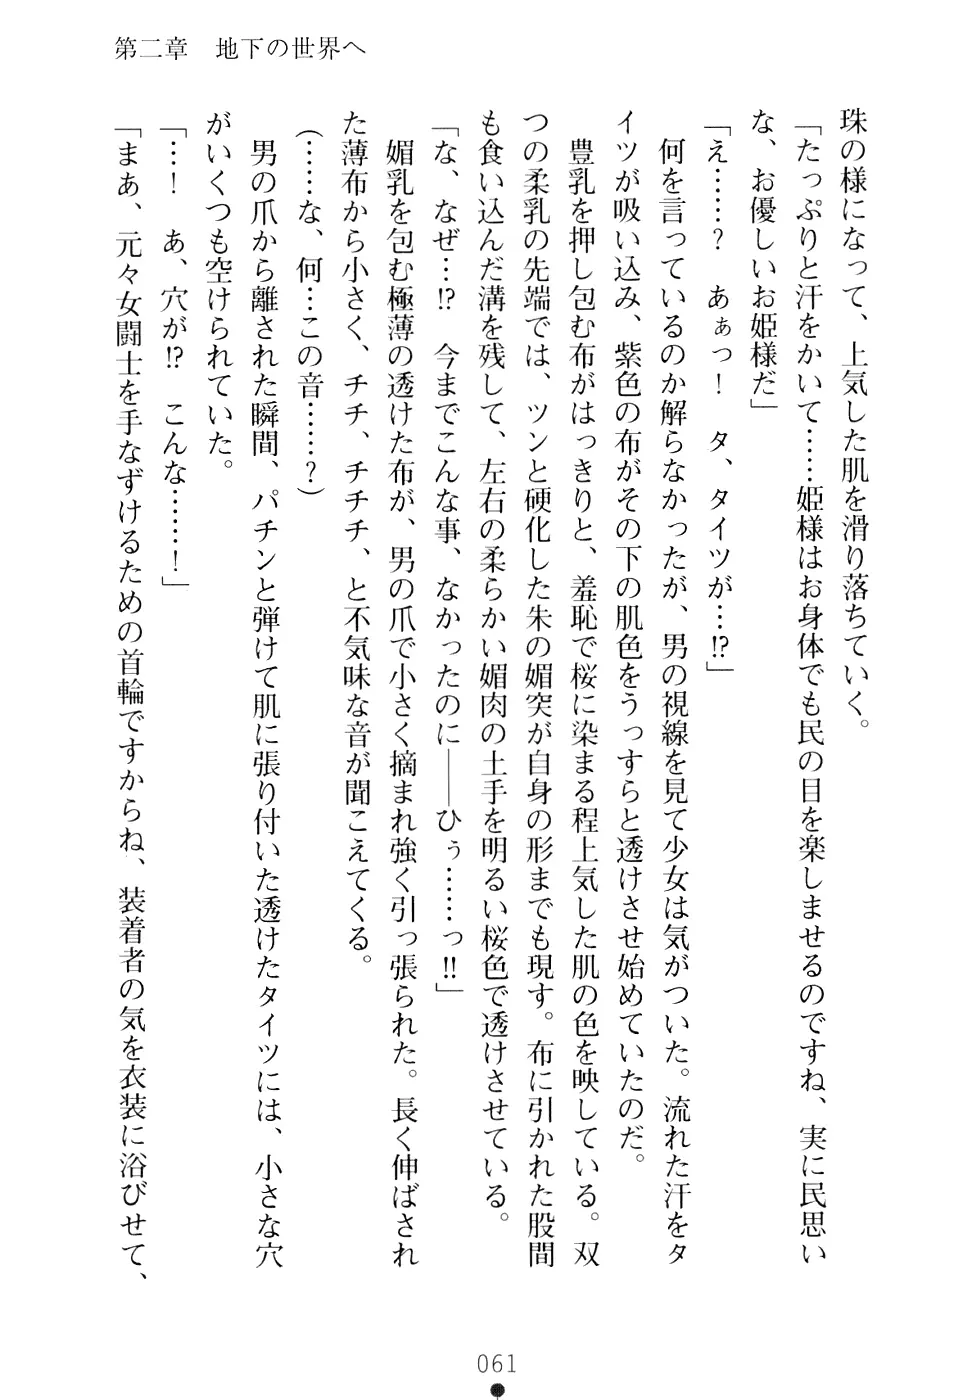 第二章　地下の世界へ
珠の様になって、上気した肌を滑り落ちていく。
「たっぷりと汗をかいて……姫様はお身体でも民の目を楽しませるのですね、実に民思い
な、お優しいお姫様だ」
「え……？　あぁっ！　タ、タイツが…!?」
何を言っているのか解らなかったが、男の視線を見て少女は気がついた。流れた汗をタ
イツが吸い込み、紫色の布がその下の肌色をうっすらと透けさせ始めていたのだ。
豊乳を押し包む布がはっきりと、羞恥で桜に染まる程上気した肌の色を映している。双
つの柔乳の先端では、ツンと硬化した朱の媚突が自身の形までも現す。布に引かれた股間
も食い込んだ溝を残して、左右の柔らかい媚肉の土手を明るい桜色で透けさせている。
「な、なぜ…!?　今までこんな事、なかったのに――ひぅ……っ!!」
媚乳を包む極薄の透けた布が、男の爪で小さく摘まれ強く引っ張られた。長く伸ばされ
た薄布から小さく、チチ、チチチ、と不気味な音が聞こえてくる。
（……な、何…この音……？）
男の爪から離された瞬間、パチンと弾けて肌に張り付いた透けたタイツには、小さな穴
がいくつも空けられていた。
「…！　あ、穴が!?　こんな……！」
「まあ、元々女闘士を手なずけるための首輪ですからね、装着者の気を衣装に浴びせて、
061